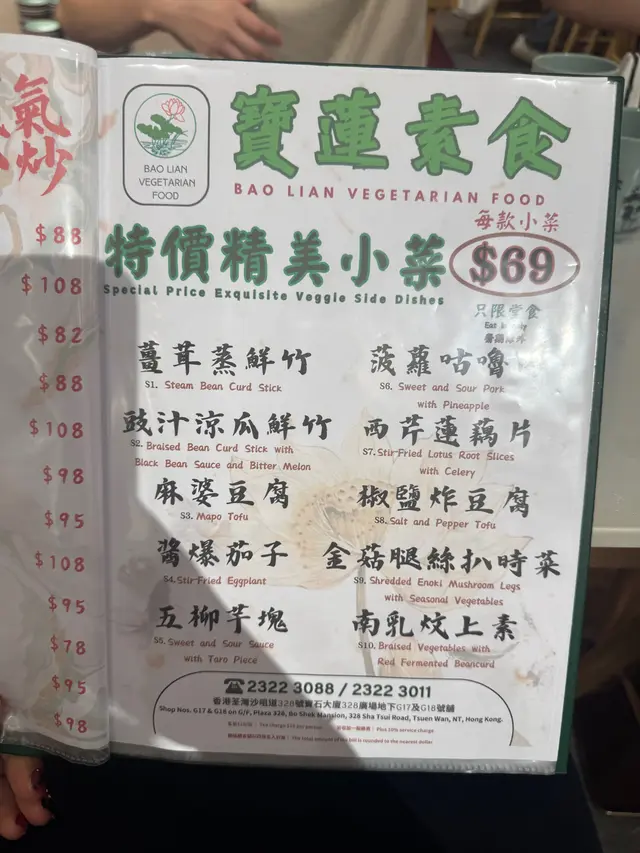 氣
炒
$88
$108
$82
$88
$108
$98
$95
$108
$95
$78
$95
$98
BAO LIAN
VEGETARIAN
FOOD
寶蓮素食
BAO LIAN VEGETARIAN FOOD
每款小菜
特價精美小菜
$69
Special Price Exquisite Veggie Side Dishes
只限堂食
薑茸蒸鮮竹
S1. Steam Bean Curd Stick
豉汁涼瓜鮮竹
S2. Braised Bean Curd Stick with
Black Bean Sauce and Bitter Melon
麻婆豆腐
S3. Mapo Tofu
醬爆茄子
S4. Stir-Fried Eggplant
五柳芋塊
S5. Sweet and Sour Sauce
with Taro Piece
菠蘿咕嚕
S6. Sweet and Sour Pork
with Pineapple
西芹蓮藕片
S7. Stir-Fried Lotus Root Slices
with Celery
椒鹽炸豆腐
S8. Salt and Pepper Tofu
金菇腿絲扒時菜
S9. Shredded Enoki Mushroom Legs
with Seasonal Vegetables
南乳炆上素
S10. Braised Vegetables with
Red Fermented Beancurd
☎2322 3088 / 2322 3011
香港荃灣沙咀道328號寶石大廈328廣場地下G17及G18號舖
Shop Nos. G17 & G18 on G/F, Plaza 328, Bo Shek Mansion, 328 Sha Tsui Road, Tsuen Wan, NT, Hong Kong.
Plus 10% service charge
The total amount of the bill is rounded to the nearest dollar